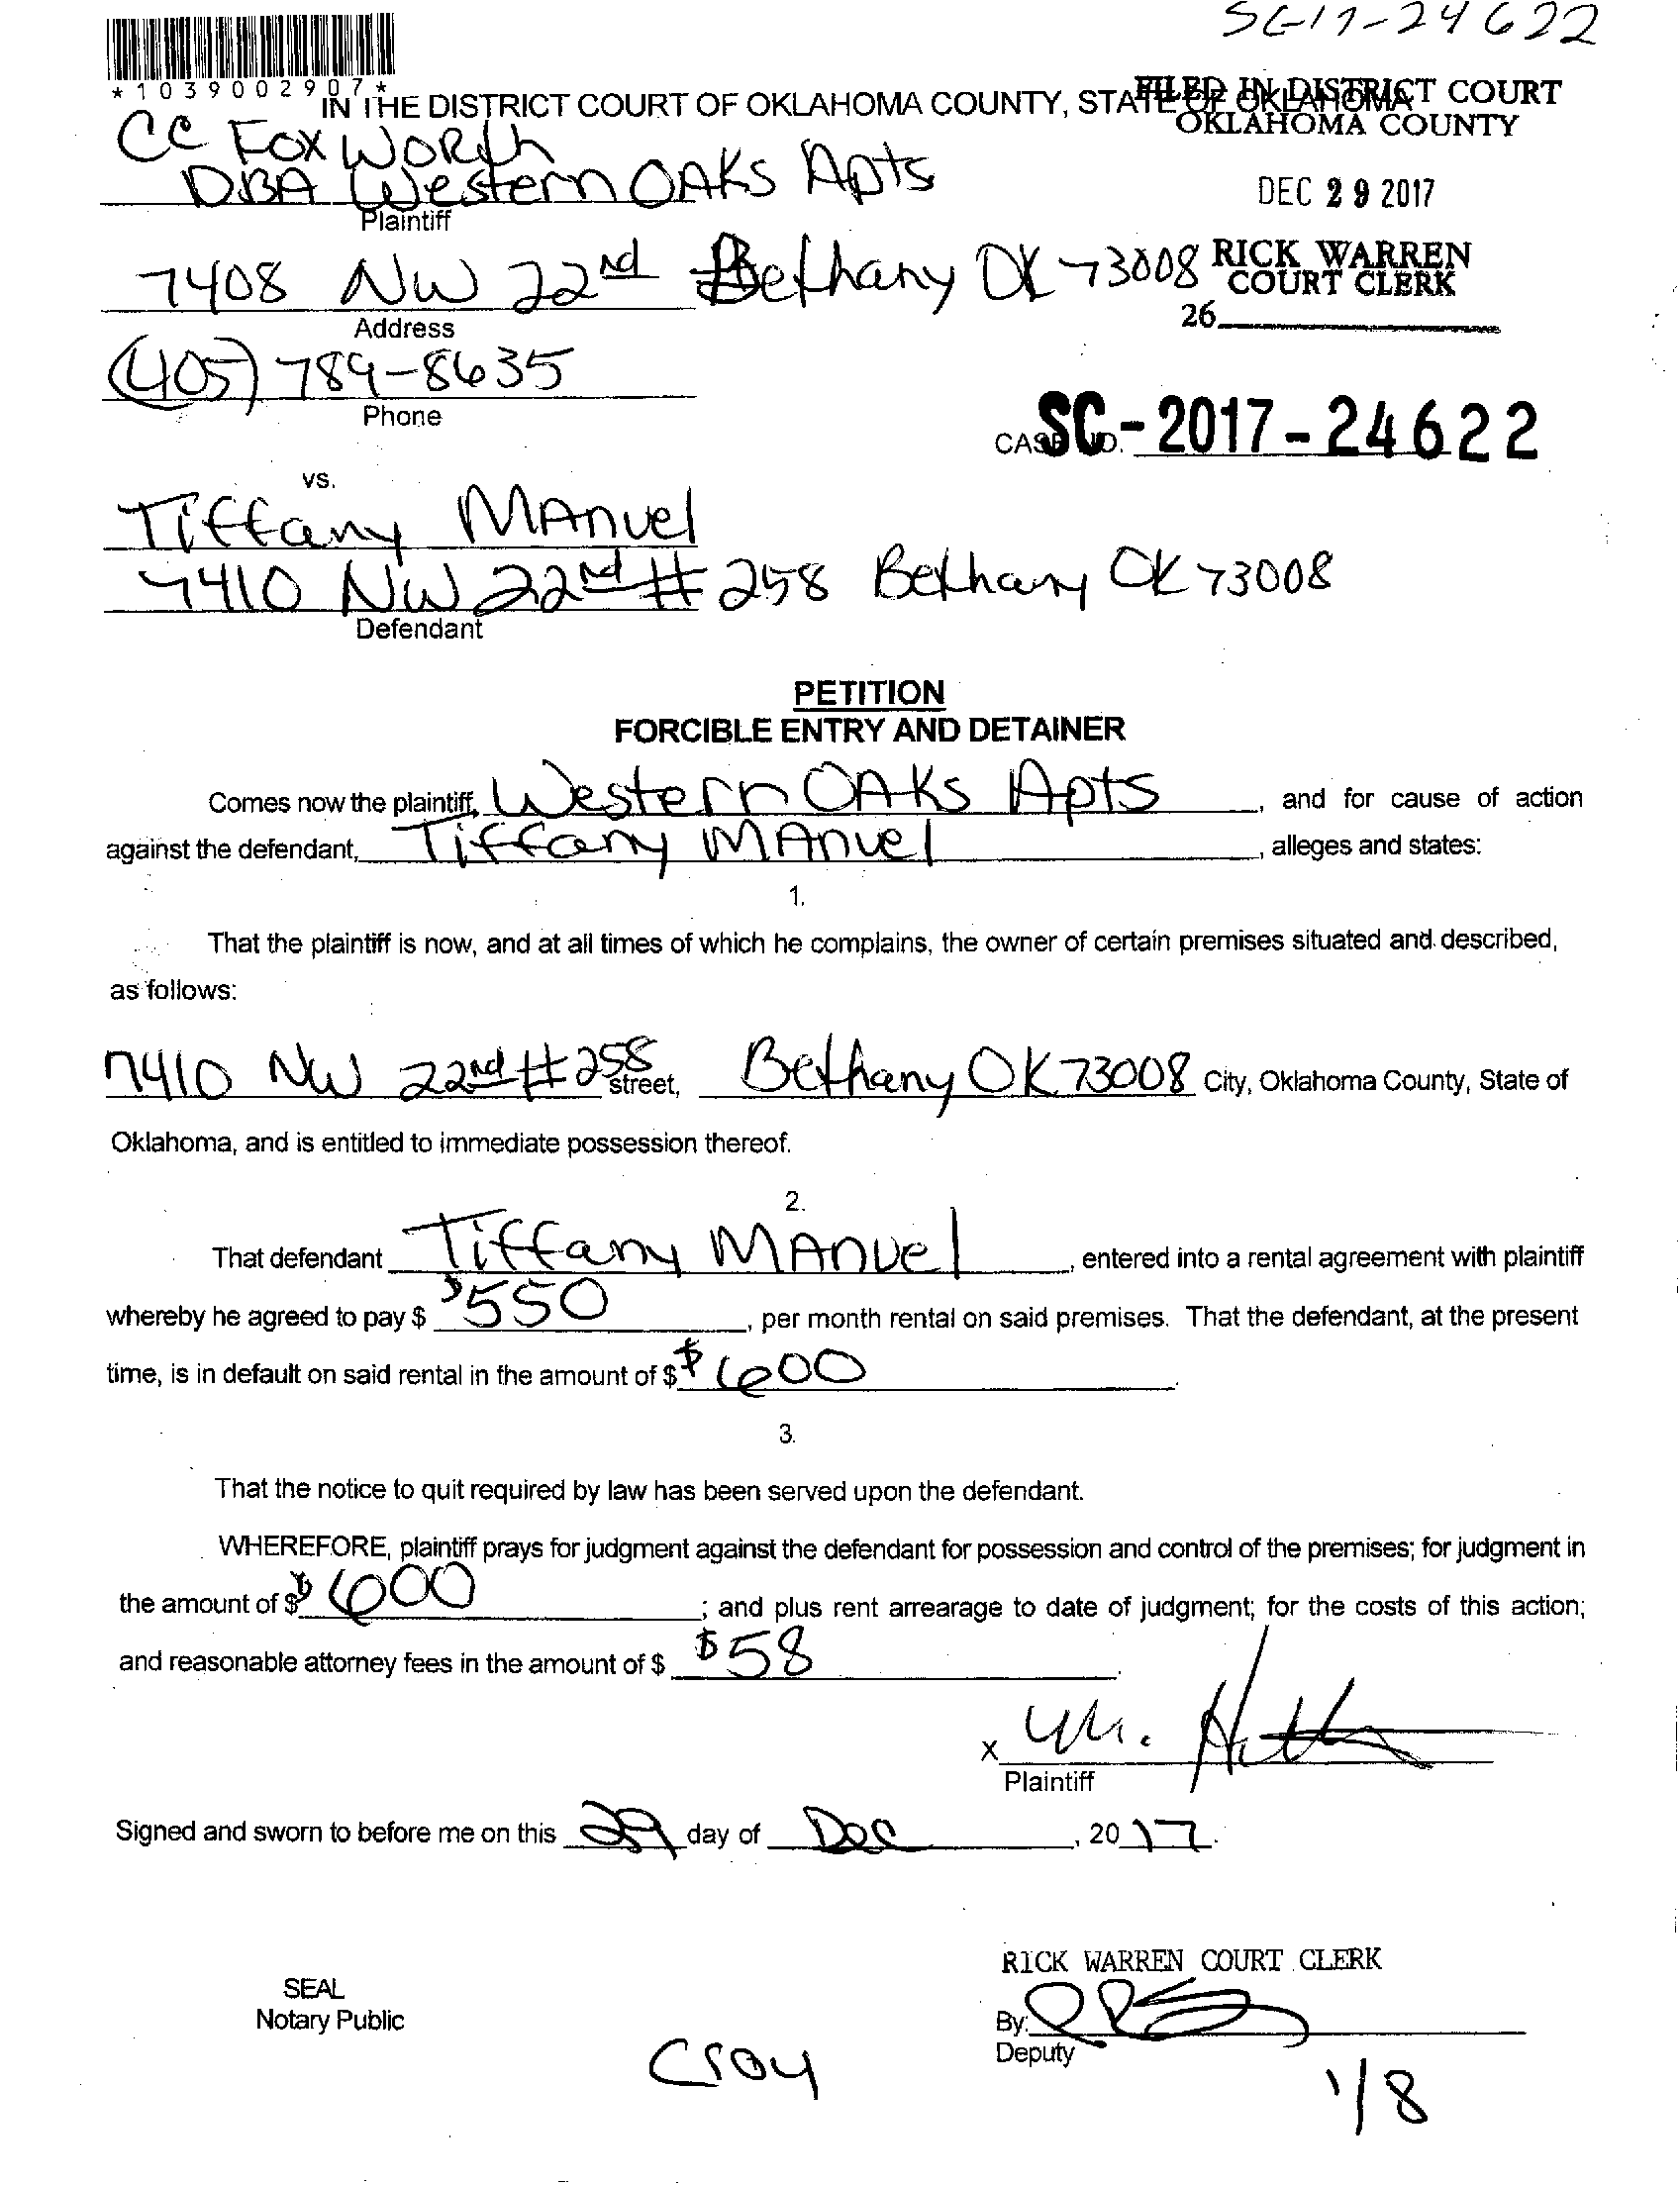 SC-17-24622
*1039002907*
IN THE DISTRICT COURT OF OKLAHOMA COUNTY, STATE OF OKLAHOMA
FILED IN DISTRICT COURT
OKLAHOMA COUNTY
CC FoxWorth
DBA Western OAKS Apts
Plaintiff
DEC 29 2017
7408 NW 22nd Bethany OK 73008
RICK WARREN
COURT CLERK
Address
26
(405) 789-8635
Phone
CASE NO. SC-2017-24622
vs.
Tiffany MAnuel
7410 NW 22nd #258 Bethany OK 73008
Defendant
PETITION
FORCIBLE ENTRY AND DETAINER
Comes now the plaintiff, Western OAKS Apts, and for cause of action
against the defendant, Tiffany MAnuel, alleges and states:
1.
That the plaintiff is now, and at all times of which he complains, the owner of certain premises situated and described,
as follows:
7410 NW 22nd #258 street, Bethany OK 73008 City, Oklahoma County, State of
Oklahoma, and is entitled to immediate possession thereof.
2.
That defendant Tiffany MAnuel, entered into a rental agreement with plaintiff
whereby he agreed to pay $ $550, per month rental on said premises. That the defendant, at the present
time, is in default on said rental in the amount of $ $600.
3.
That the notice to quit required by law has been served upon the defendant.
WHEREFORE, plaintiff prays for judgment against the defendant for possession and control of the premises; for judgment in
the amount of $ $600; and plus rent arrearage to date of judgment; for the costs of this action;
and reasonable attorney fees in the amount of $ $58.
x
Plaintiff
Signed and sworn to before me on this 29 day of Dec, 2017.
RICK WARREN COURT CLERK
SEAL
Notary Public
By:
Deputy
Croy
1/8